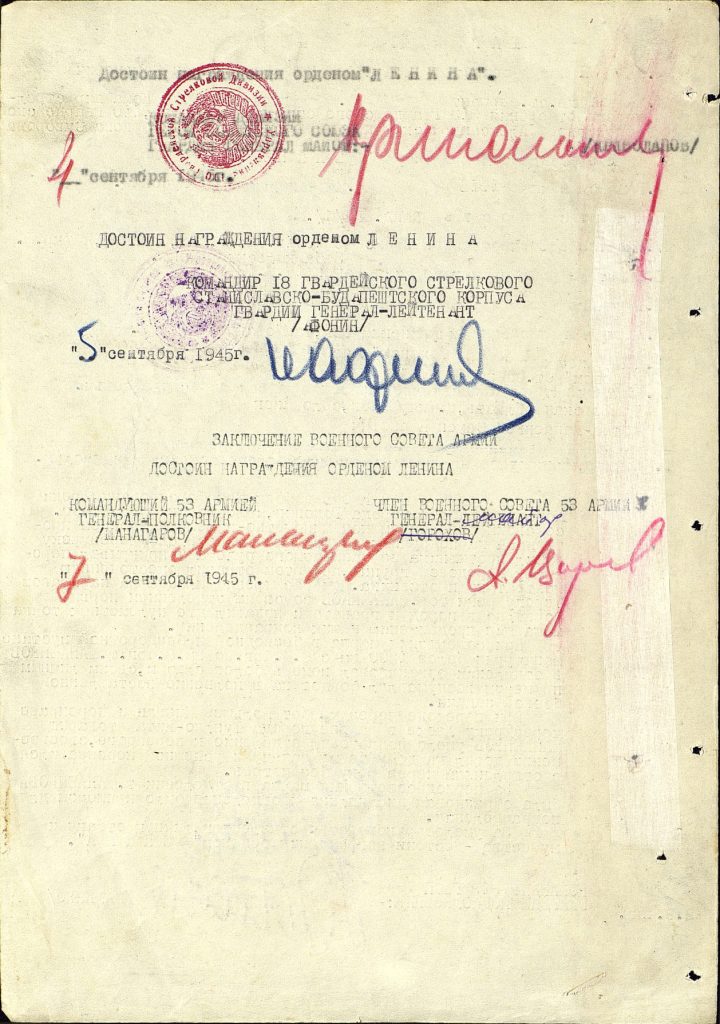 Достоин награждения орденом "Л Е Н И Н А".
ГЕРОЙ СОВЕТСКОГО СОЮЗА
ГВАРДИИ ГЕНЕРАЛ МАЙОР:-
4
"сентября
ДОСТОИН НАГРАЖДЕНИЯ орденом Л Е Н И Н А
КОМАНДИР 18 ГВАРДЕЙСКОГО СТРЕЛКОВОГО
СТАНИСЛАВСКО-БУДАПЕШТСКОГО КОРПУСА
ГВАРДИИ ГЕНЕРАЛ-ЛЕЙТЕНАНТ
/АФОНИН/
"5" сентября 1945г.
ЗАКЛЮЧЕНИЕ ВОЕННОГО СОВЕТА АРМИИ
ДОСТОИН НАГРАЖДЕНИЯ ОРДЕНОМ ЛЕНИНА
КОМАНДУЮЩИЙ 53 АРМИЕЙ
ГЕНЕРАЛ-ПОЛКОВНИК
/МАНАГАРОВ/ Манагаров
ЧЛЕН ВОЕННОГО СОВЕТА 53 АРМИИ
ГЕНЕРАЛ-
/ГОРОХОВ/
"7" сентября 1945 г.